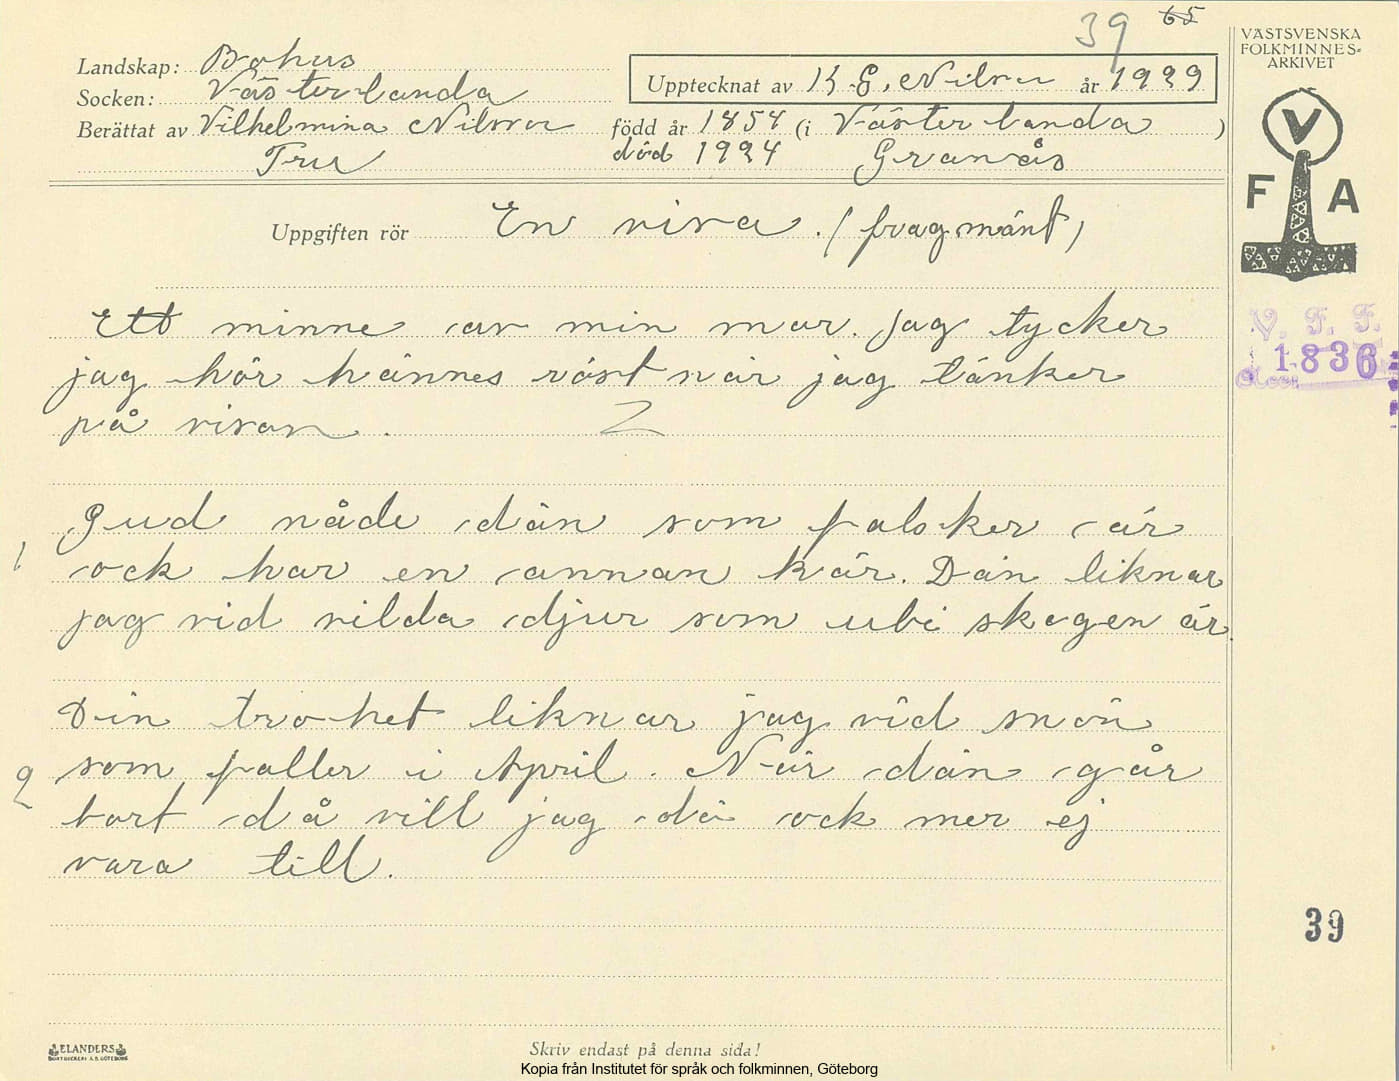 39 65
VÄSTSVENSKA
FOLKMINNES-
ARKIVET
Landskap: Bohus
Socken: Västerlanda
Upptecknat av K. G. Nilson år 1929
Berättat av Vilhelmina Nilson född år 1854 (i Västerlanda)
Fru död 1924 Granås
V
F A
Uppgiften rör En visa. (fragmänt)
V. F. F.
1836
Ett minne av min mor. Jag tycker
jag hör hännes röst när jag tänker
på visan.
1 Gud nåde dän som falsker är
ock har en annan kär. Dän liknar
jag vid vilda djur som ubi skogen är.
2 Din trohet liknar jag vid snön
som faller i April. När dän går
bort då vill jag dö ock mer ej
vara till.
39
ELANDERS
BOKTRYCKERI A.B. GÖTEBORG
Skriv endast på denna sida!
Kopia från Institutet för språk och folkminnen, Göteborg